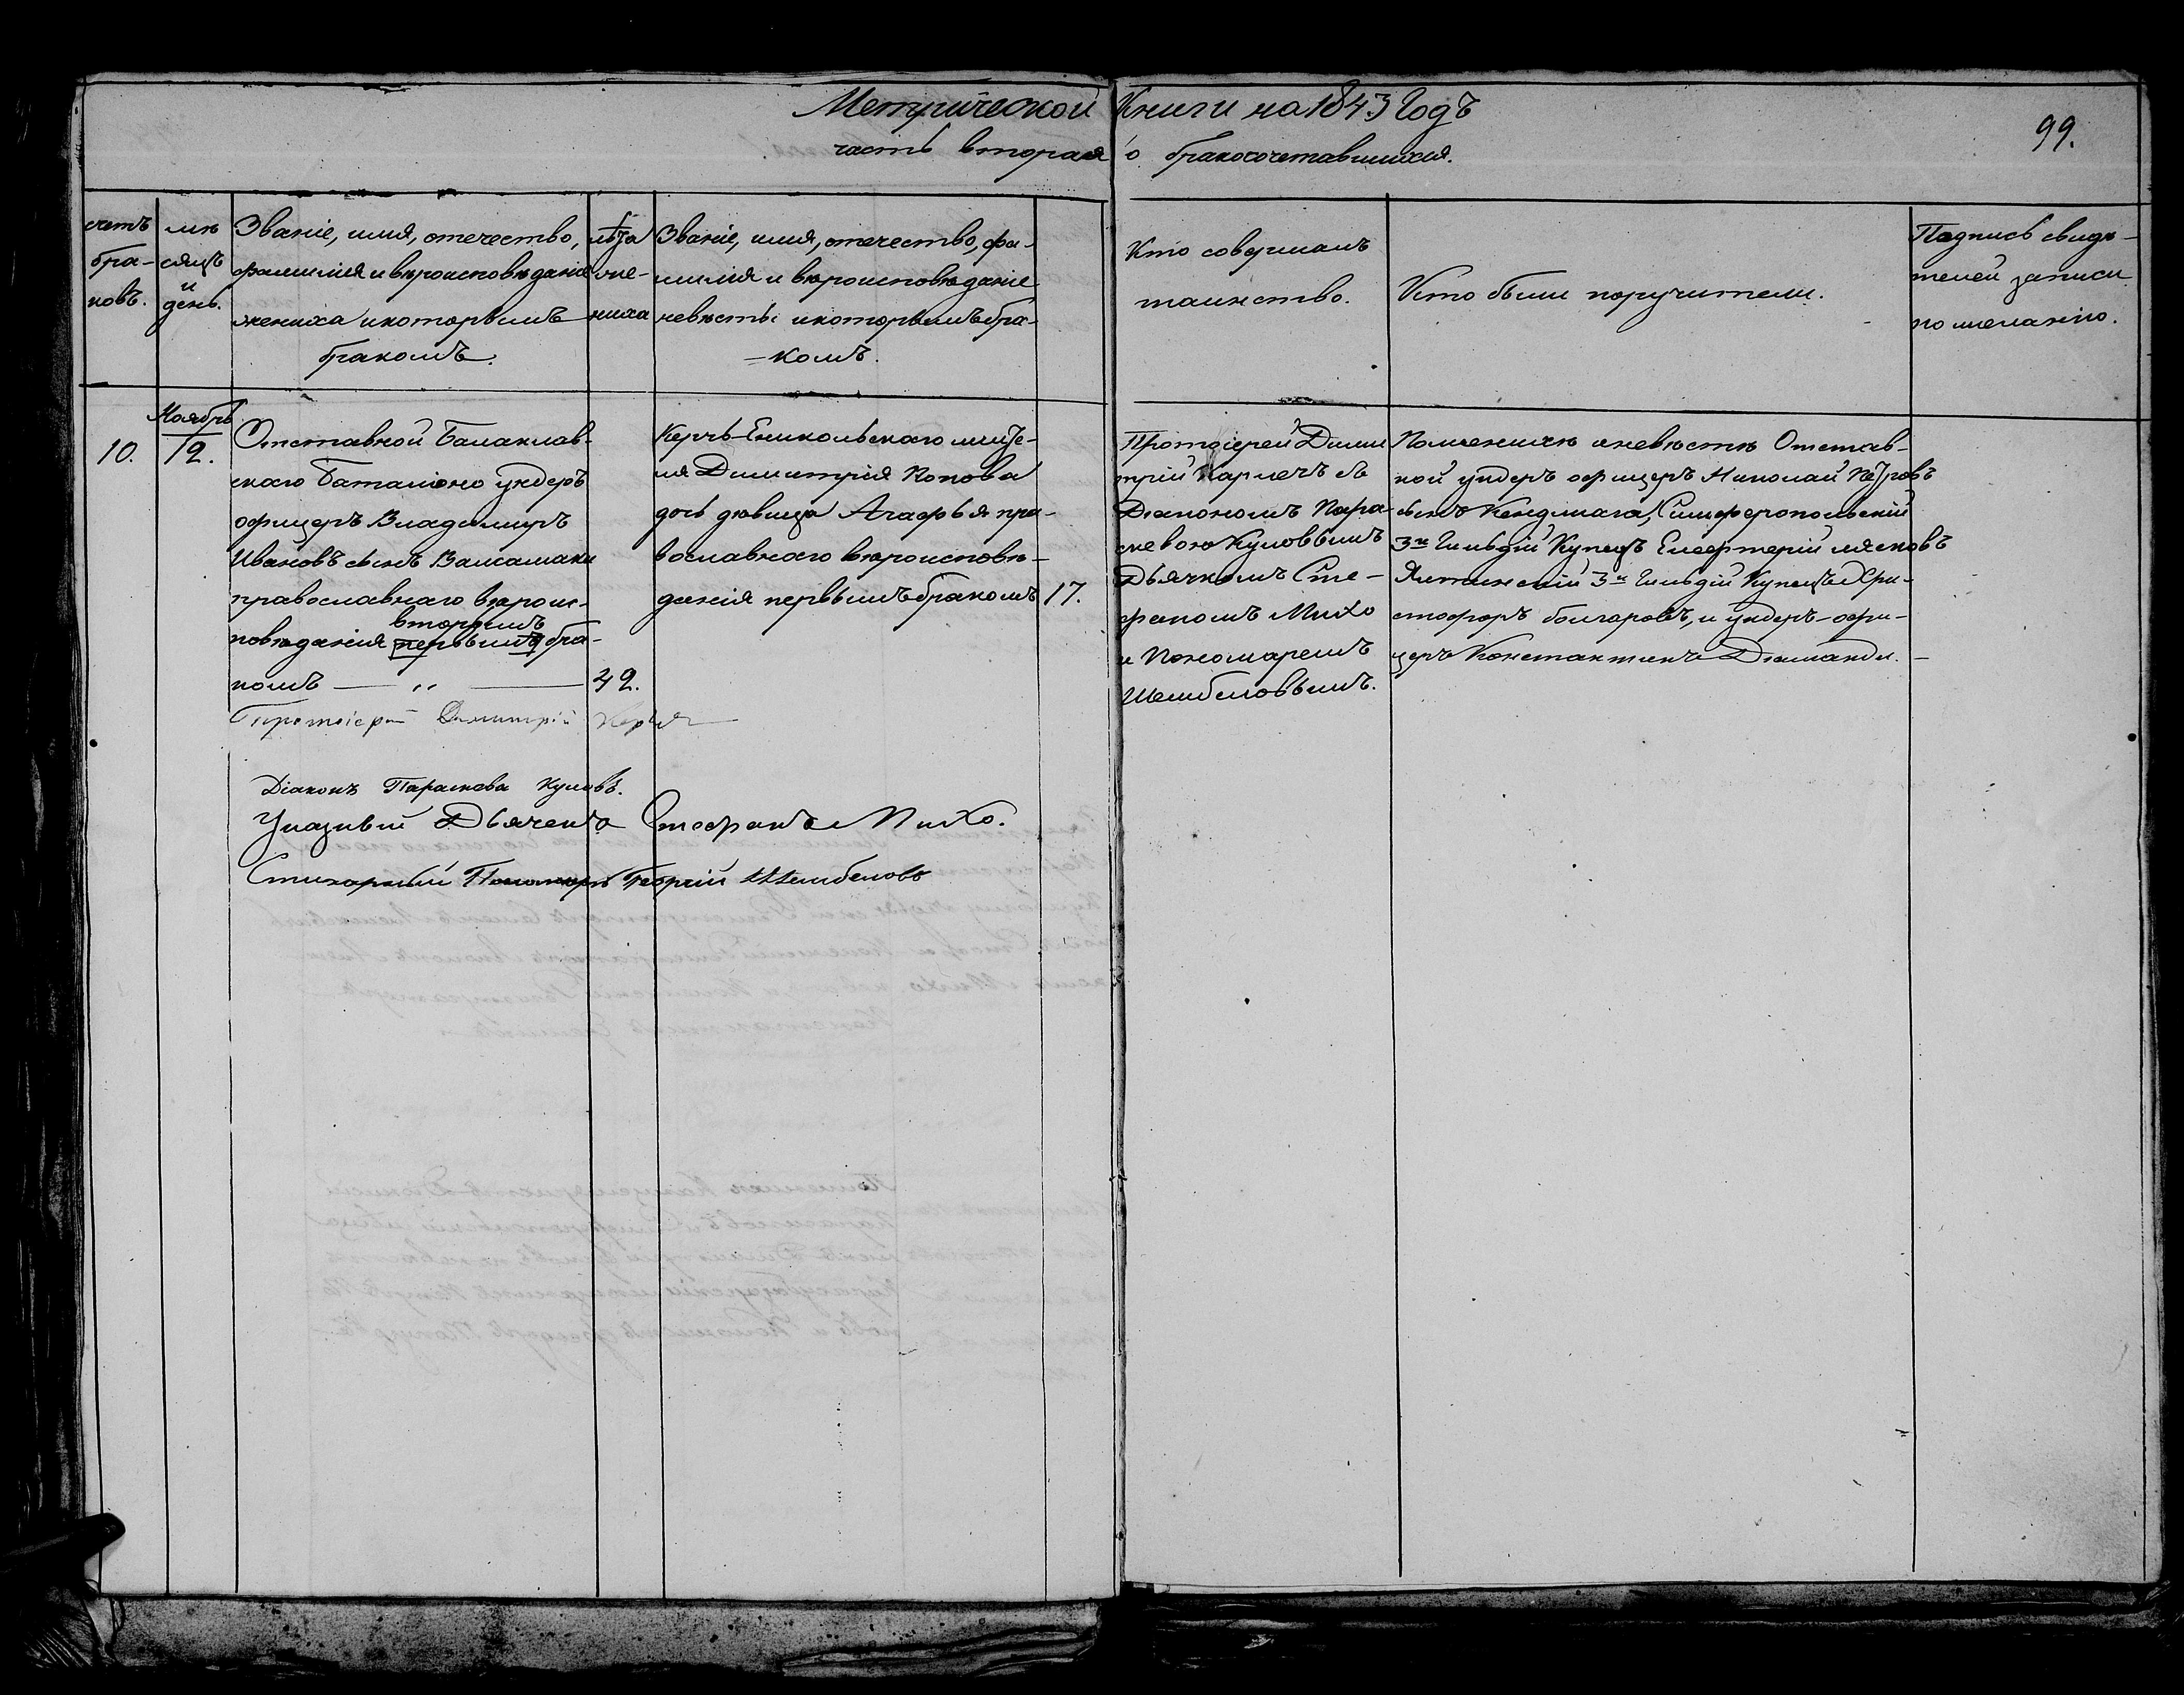 Метрической Книги на 1843 Годъ
часть вторая о бракосочетавшихся.
99.
счетъ бра-ковъ.
мѣ сяцъ и день.
Званіе, имя, отечество,
фамилія и вѣроисповѣданіе
жениха и которымъ
бракомъ.
лѣта же-ниха
Званіе, имя, отечество, фа-
милія и вѣроисповѣданіе
невѣсты и которымъ бра-
-комъ.
Кто совершалъ
таинство.
Кто были поручители.
Подпись свидѣ-
телей записи
по желанію.
10.
Ноябрь
12.
Отставной Балаклав-
скаго Баталіона ундеръ
офицеръ Владимиръ
Ивановъ сынъ
православнаго вѣроис-
вторымъ
повѣданія первымъ бра-
комъ — „ — 42.
Керчь-Еникольскаго жите-
ля Димитрія Попова
дочь дѣвица Агафья пра-
вославнаго вѣроисповѣ-
данія первымъ бракомъ 17.
Протоіерей Дими
трій съ
Діакономъ Пара-
скевою Куловымъ
Дьячкомъ Сте-
фаномъ Михо
и Пономаремъ
Шембеловымъ.
По женихѣ и невѣстѣ Отстав-
ной ундеръ офицеръ Николай Петровъ
сынъ Симферопольскій
3й Гильдій Купецъ Елефтерій
Ялтинскій 3й Гильдій Купецъ Хри-
стофоръ болгаровъ, и ундеръ-офи-
церъ Константинъ Діаманди.
Протоіерей Димитрій
Діаконъ Параскева Куловъ.
Указный Дьячекъ Стефанъ Михо.
Стихарный Пономарь Георгій Шембеловъ